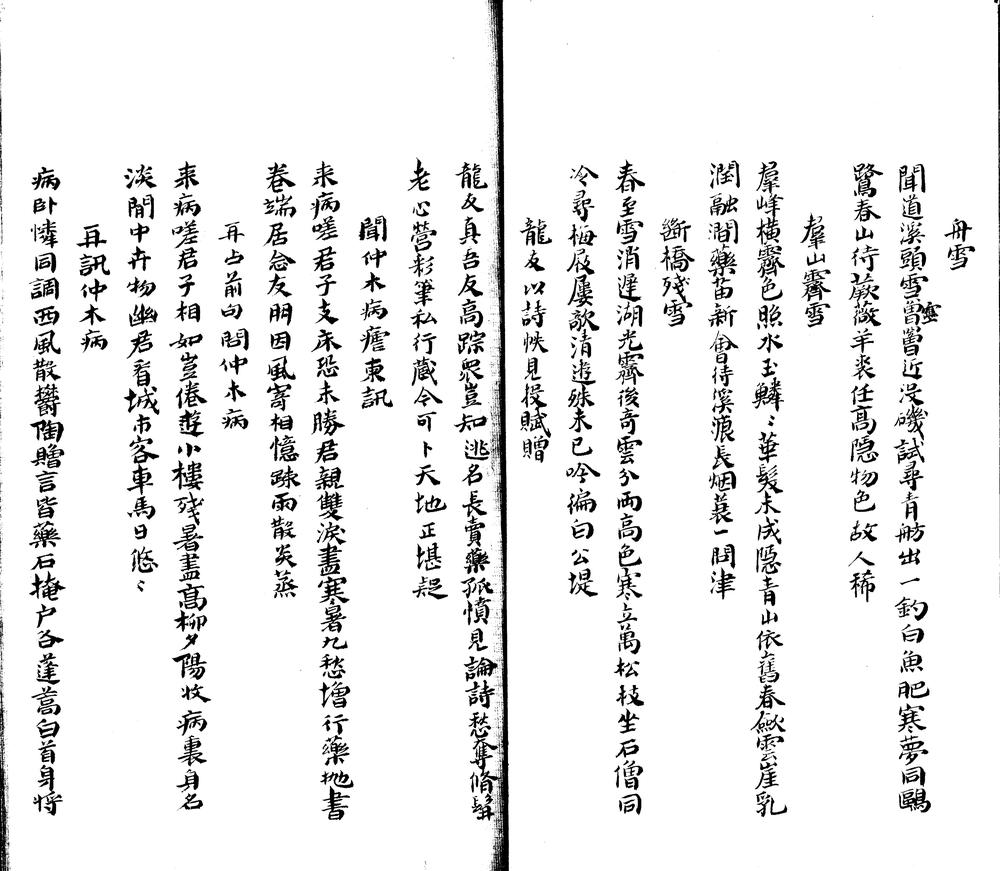 舟雪
聞道溪頭雪鸎鸎近没磯試尋青舫出一釣白魚肥寒夢同鷗
鷺春山待蕨薇羊裘任高隠物色故人稀
羣山霽雪
羣峰横霽色照水玉鱗〻華髮未成隠青山依舊春歘雲崖乳
潤融澗藥苗新會待溪痕長烟蓑一問津
斷橋殘雪
春至雪消遲湖光霽後奇雲分兩高色寒立萬松枝坐石僧同
冷尋梅屐屢欹清遊殊未已吟徧白公堤
龍友以詩帙見投賦贈
龍友真吾友高踪衆豈知逃名長賣藥孤憤見論詩愁奪脩髯
老心營彩筆私行蔵今可卜天地正堪疑
聞仲木病瘧柬訊
来病嗟君子支床恐未勝君親雙淚盡寒暑九愁増行藥抛書
卷端居念友朋因風寄相憶踈雨散炎蒸
再占前句問仲木病
来病嗟君子相如豈倦遊小樓殘暑盡髙柳夕陽收病裏身名
淡閒中卉物幽君看城市客車馬日悠〻
再訊仲木病
病卧憐同調西風散鬱陶贈言皆藥石掩户各蓬蒿白首身将